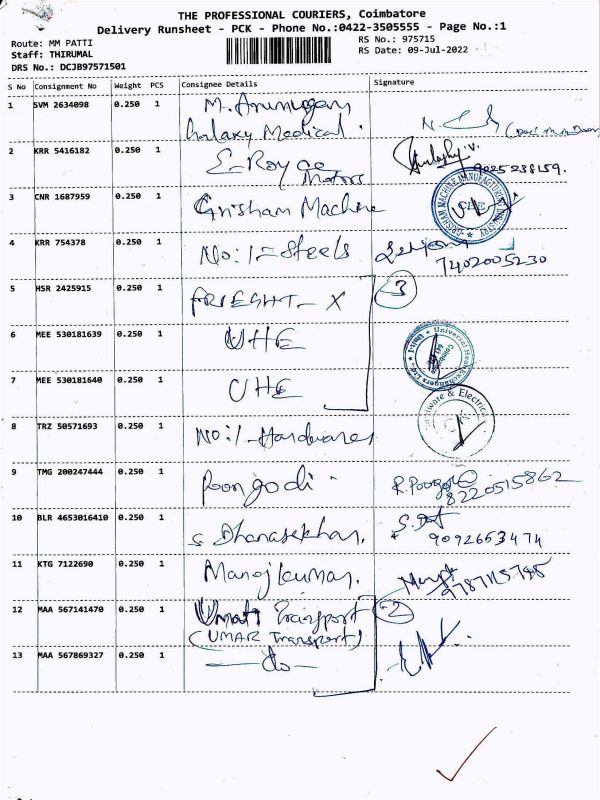 THE PROFESSIONAL COURIERS, Coimbatore
Delivery Runsheet - PCK - Phone No.:0422-3505555 - Page No.:1
Route: MM PATTI
RS No.: 975715
Staff: THIRUMAL
RS Date: 09-Jul-2022
DRS No.: DCJB97571501
S No Consignment No Weight PCS Consignee Details Signature
1 SVM 2634098 0.250 1 M. Arumugam
Galaxy Medical
2 KRR 5416182 0.250 1 E-Royce
Motors
9025238159.
3 CNR 1687959 0.250 1 Grisham Machine
4 KRR 754378 0.250 1 No:1-Steels
7402005230
5 HSR 2425915 0.250 1 FRIEGHT-X 3
6 MEE 530181639 0.250 1 UHE
7 MEE 530181640 0.250 1 UHE
8 TRZ 50571693 0.250 1 No:1-Hardwares
9 TMG 200247444 0.250 1 Poongodi R. Poongodi
8220515862
10 BLR 4653016410 0.250 1 S Dhanasekhar.
9092653474
11 KTG 7122690 0.250 1 Manojkumar.
9787115788
12 MAA 567141470 0.250 1 Umar Transport 2
(UMAR Transport)
13 MAA 567869327 0.250 1 -do-